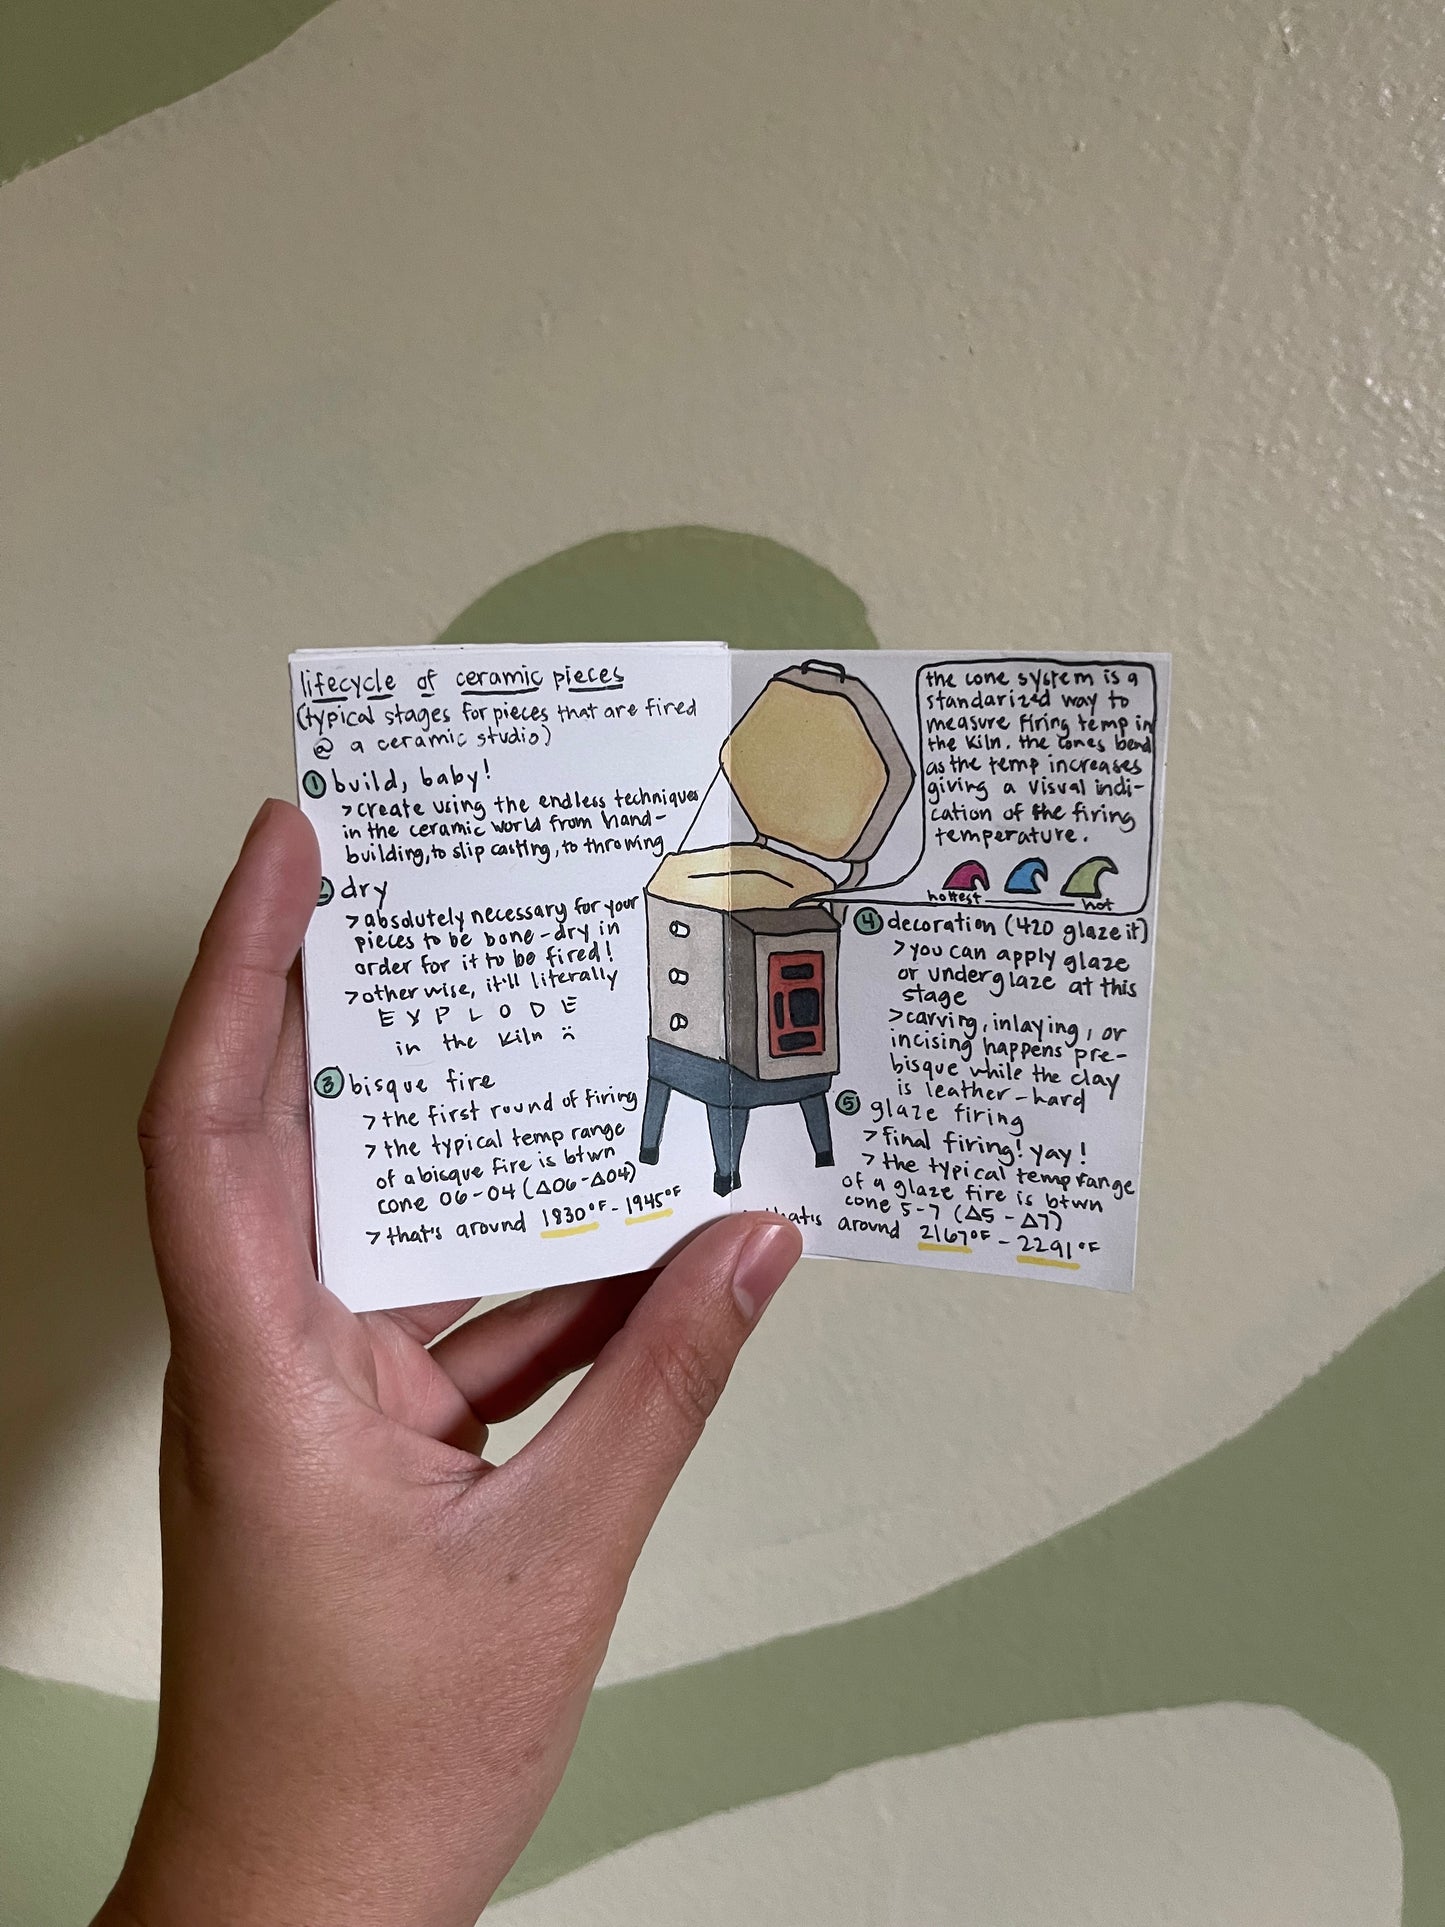 lifecycle of ceramic pieces
(typical stages for pieces that are fired
@ a ceramic studio)
① build, baby!
> create using the endless techniques
in the ceramic world from hand-
building, to slip casting, to throwing
2 dry
> absolutely necessary for your
pieces to be bone-dry in
order for it to be fired!
> otherwise, it'll literally
E X P L O D E
in the kiln :(
③ bisque fire
> the first round of firing
> the typical temp range
of a bisque fire is btwn
cone 06-04 (Δ06-Δ04)
> that's around 1830°F - 1945°F
the cone system is a
standarized way to
measure firing temp in
the kiln. the cones bend
as the temp increases
giving a visual indi-
cation of the firing
temperature.
hottest hot
④ decoration (420 glaze it)
> you can apply glaze
or underglaze at this
stage
> carving, inlaying, or
incising happens pre-
bisque while the clay
is leather-hard
⑤ glaze firing
> final firing! yay!
> the typical temp range
of a glaze fire is btwn
cone 5-7 (Δ5 - Δ7)
that's around 2167°F - 2291°F